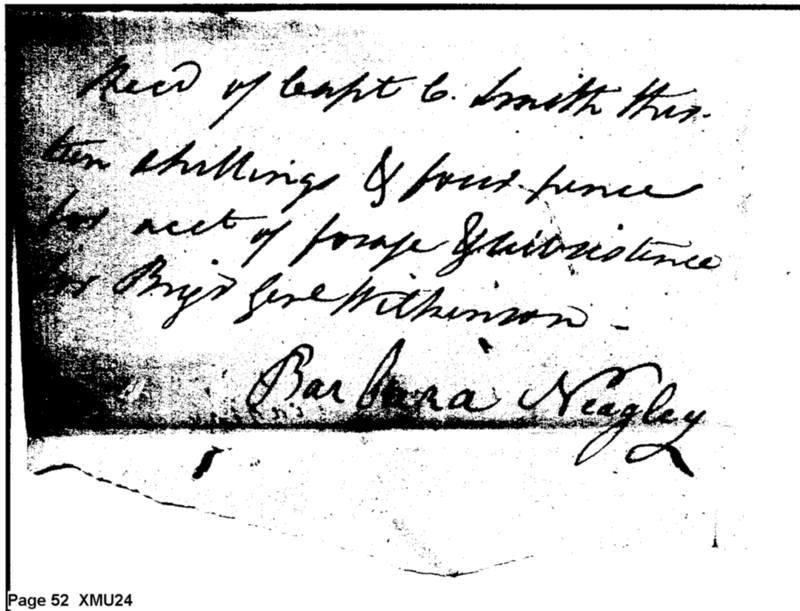 Recd of Capt C. Smith thir-
teen shillings & four pence
for acct of forage & subsistence
for Brigd Genl Wilkinson -
Barbara Neagley
Page 52 XMU24